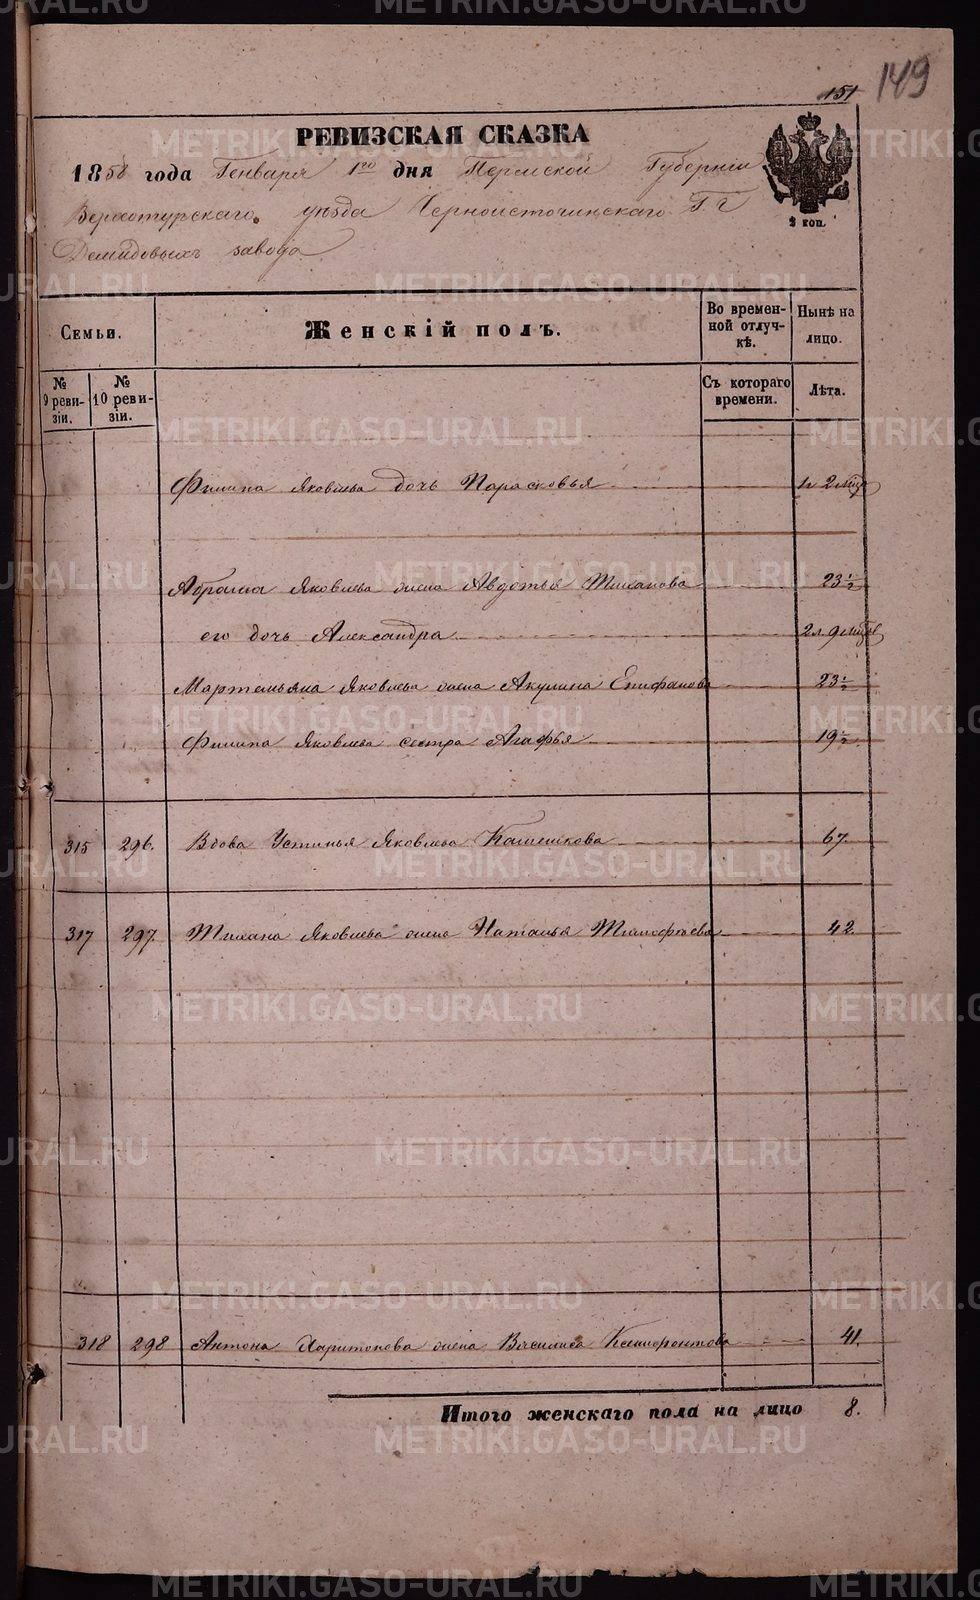 149
151
РЕВИЗСКАЯ СКАЗКА
1858 года Генваря 1го дня Пермской Губернии
Верхотурскаго уѣзда Черноисточинскаго Г. г
Демидовыхъ завода
2 коп.
Семьи.
Женскій полъ.
Во временной отлучкѣ.
Нынѣ на лицо.
№ 9 ревизіи.
№ 10 ревизіи.
Съ котораго времени.
Лѣта.
Филипа Яковлева дочь Парасковья 1г 2 мцв
Абрама Яковлева жена Авдотья Тиханова 23½
его дочь Александра 2л 9 мцв
Мартемьяна Яковлева жена Акулина Епифанова 23½
Филипа Яковлева сестра Агафья 19½
315 296. Вдова Устинья Яковлева 67.
317 297. Тихана Яковлева жена Наталья Тимофѣева 42.
318 298 Антона Харитонова жена Василиса Ксенофонтова 41.
Итого женскаго пола на лицо 8.
METRIKI.GASO-URAL.RU